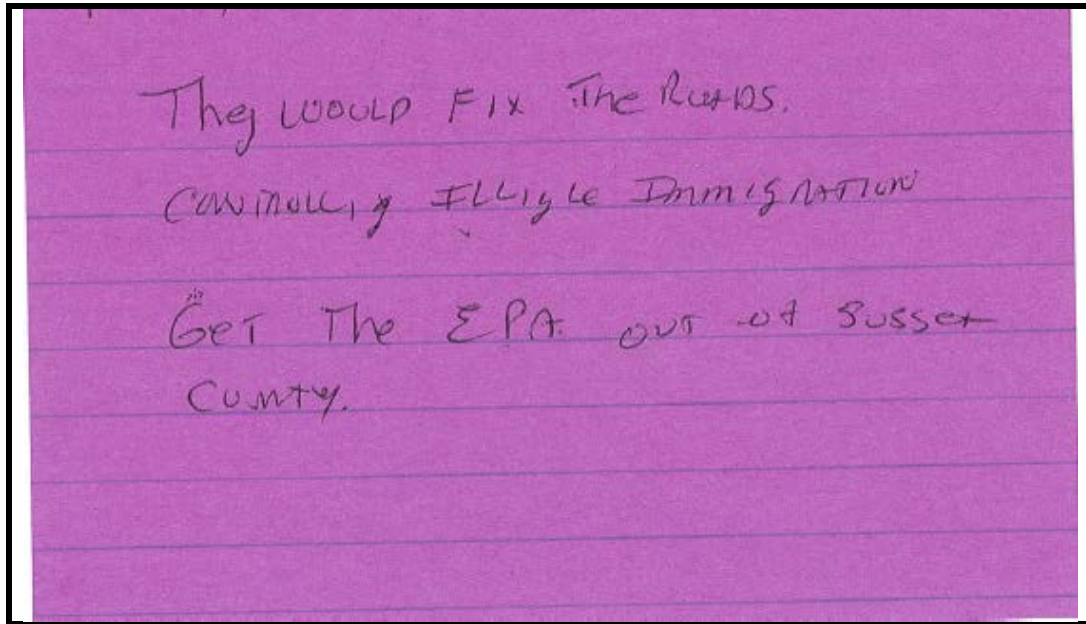 They WOULD FIX The ROADS.
CONTROLLING ILLIGLE IMMIGRATION
GeT The EPA. OUT of Sussex
COUNTY.